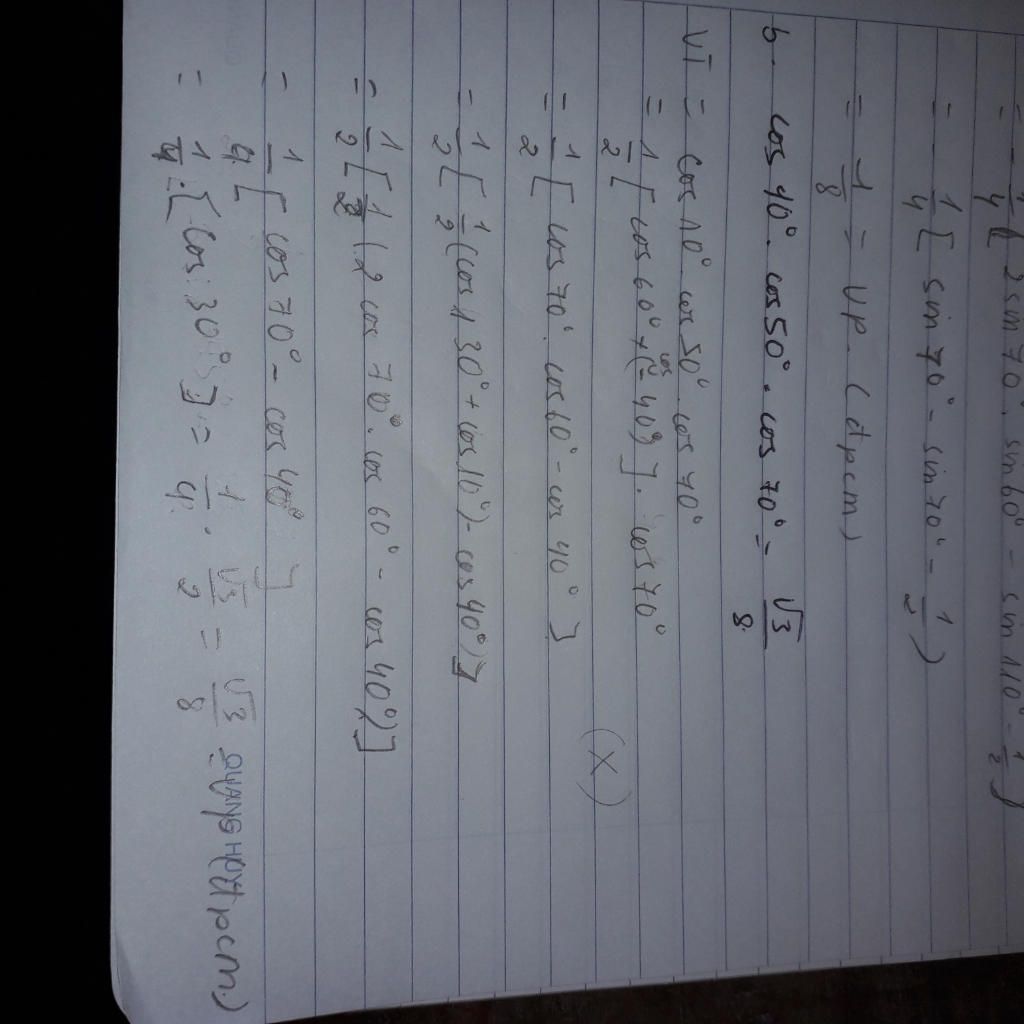 = - 1/4 ( 2 sin 70°. sin 60° - sin 110° - 1/2 )
= - 1/4 [ sin 70° - sin 70° - 1/2 )
= 1/8 = VP. (đpcm)
b. cos 40°. cos 50°. cos 70° = √3/8
VT = cos 10°. cos 50°. cos 70°
= 1/2 [ cos 60° + cos (- 40°) ]. cos 70°
= 1/2 [ cos 70°. cos 60° - cos 40° ] (X)
= 1/2 [ 1/2 (cos 130° + cos 10°) - cos 40°) ]
= 1/2 [ 1/2 ( 2 cos 70°. cos 60° - cos 40°) ]
= 1/4 [ cos 70° - cos 40° ]
= 1/4 . [ cos 30° ] = 1/4 . √3/2 = √3/8 (đpcm)
QUANG HUY